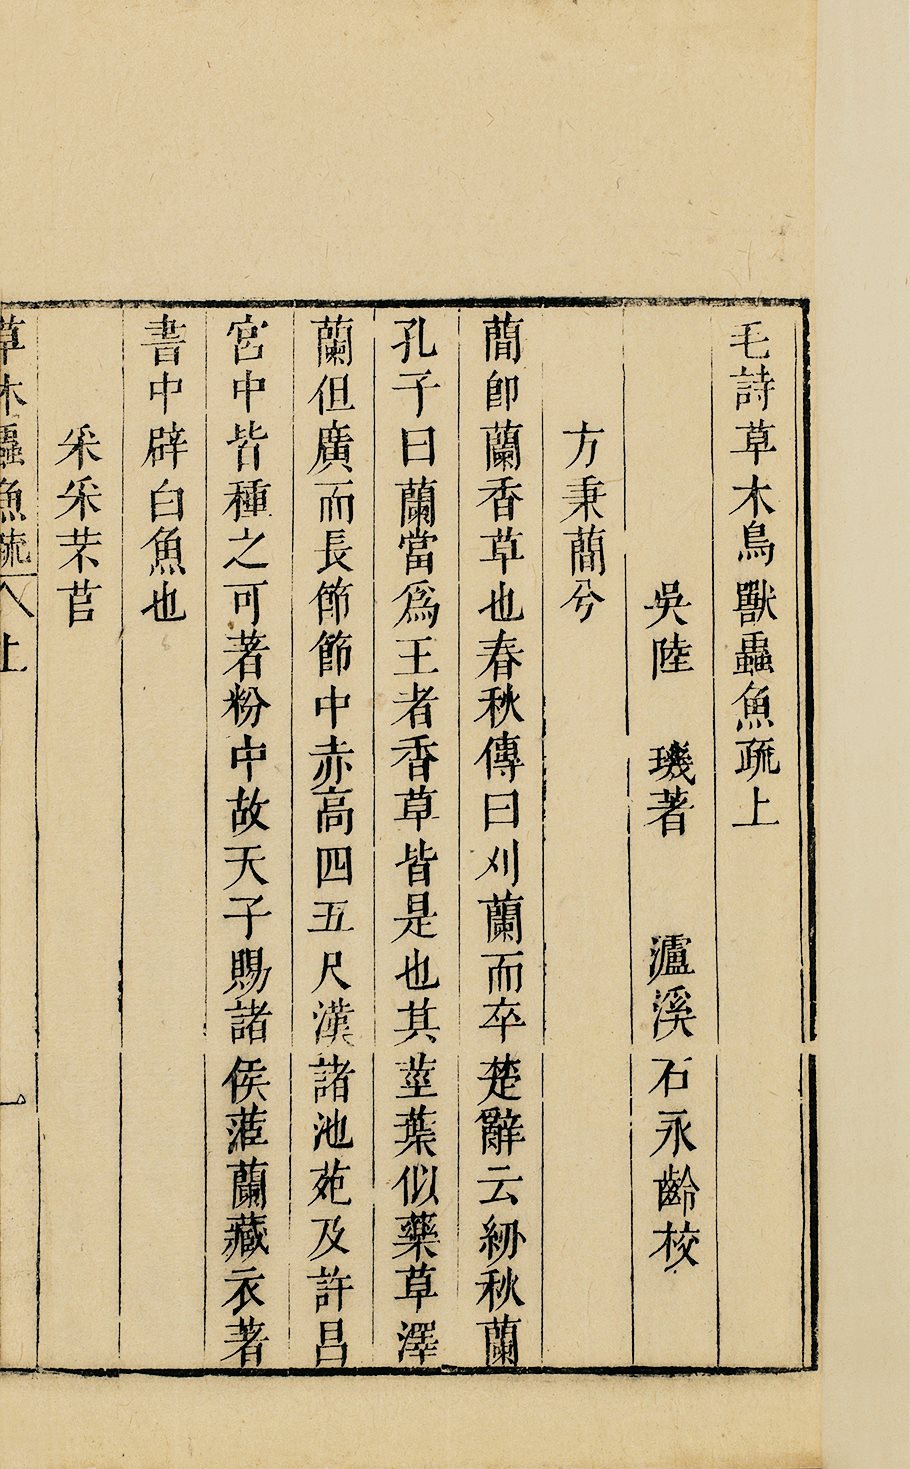 毛詩草木鳥獸蟲魚疏上
吳陸 璣著 瀘溪石永齡校
方秉蕳兮
蕳即蘭香草也春秋傳曰刈蘭而卒楚辭云紉秋蘭
孔子曰蘭當爲王者香草皆是也其莖葉似藥草澤
蘭但廣而長節節中赤高四五尺漢諸池苑及許昌
宮中皆種之可著粉中故天子賜諸侯茝蘭藏衣著
書中辟白魚也
采采芣苢
草木蟲魚疏 上 一